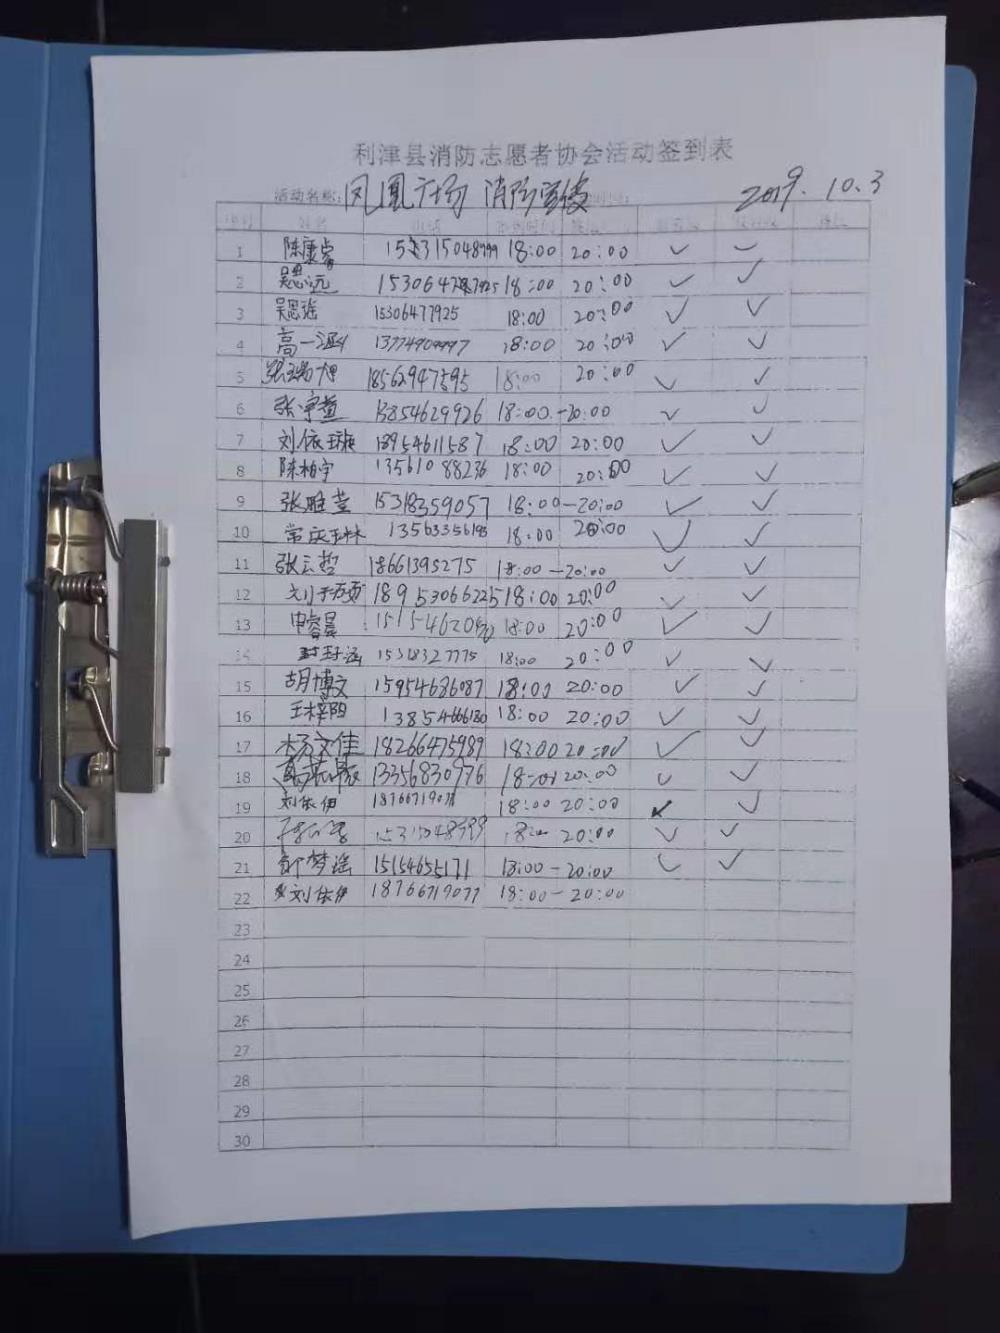 利津县消防志愿者协会活动签到表
活动名称: 凤凰广场 消防宣传 2019.10.3
序号 姓名 电话
1 陈康睿 18:00 20:00 ✓ ✓
2 吴思远 18:00 20:00 ✓ ✓
3 吴思瑶 15306477925 18:00 20:00 ✓ ✓
4 高一涵 13774909997 18:00 20:00 ✓ ✓
5 张瑞旭 18562947595 18:00 20:00 ✓ ✓
6 张宇萱 13854629926 18:00-20:00 ✓ ✓
7 刘依璇 18954611587 18:00 20:00 ✓ ✓
8 陈柏宇 13561088236 18:00 20:00 ✓ ✓
9 张雅萱 15318359057 18:00-20:00 ✓ ✓
10 常庆琳 13563356198 18:00 20:00 ✓ ✓
11 张云哲 18661395275 18:00-20:00 ✓ ✓
12 18953066225 18:00 20:00 ✓ ✓
13 申睿昊 18:00 20:00 ✓ ✓
14 15318327775 18:00 20:00 ✓ ✓
15 胡博文 15954686087 18:00 20:00 ✓ ✓
16 王梓阳 13854666180 18:00 20:00 ✓ ✓
17 杨文佳 18266475989 18:00 20:00 ✓ ✓
18 13356830976 18:00 20:00 ✓ ✓
19 刘依伊 18:00 20:00 ✓ ✓
20 20:00 ✓ ✓
21 郭梦瑶 15154655171 18:00-20:00 ✓ ✓
22 刘依伊 18766719077 18:00-20:00
23
24
25
26
27
28
29
30